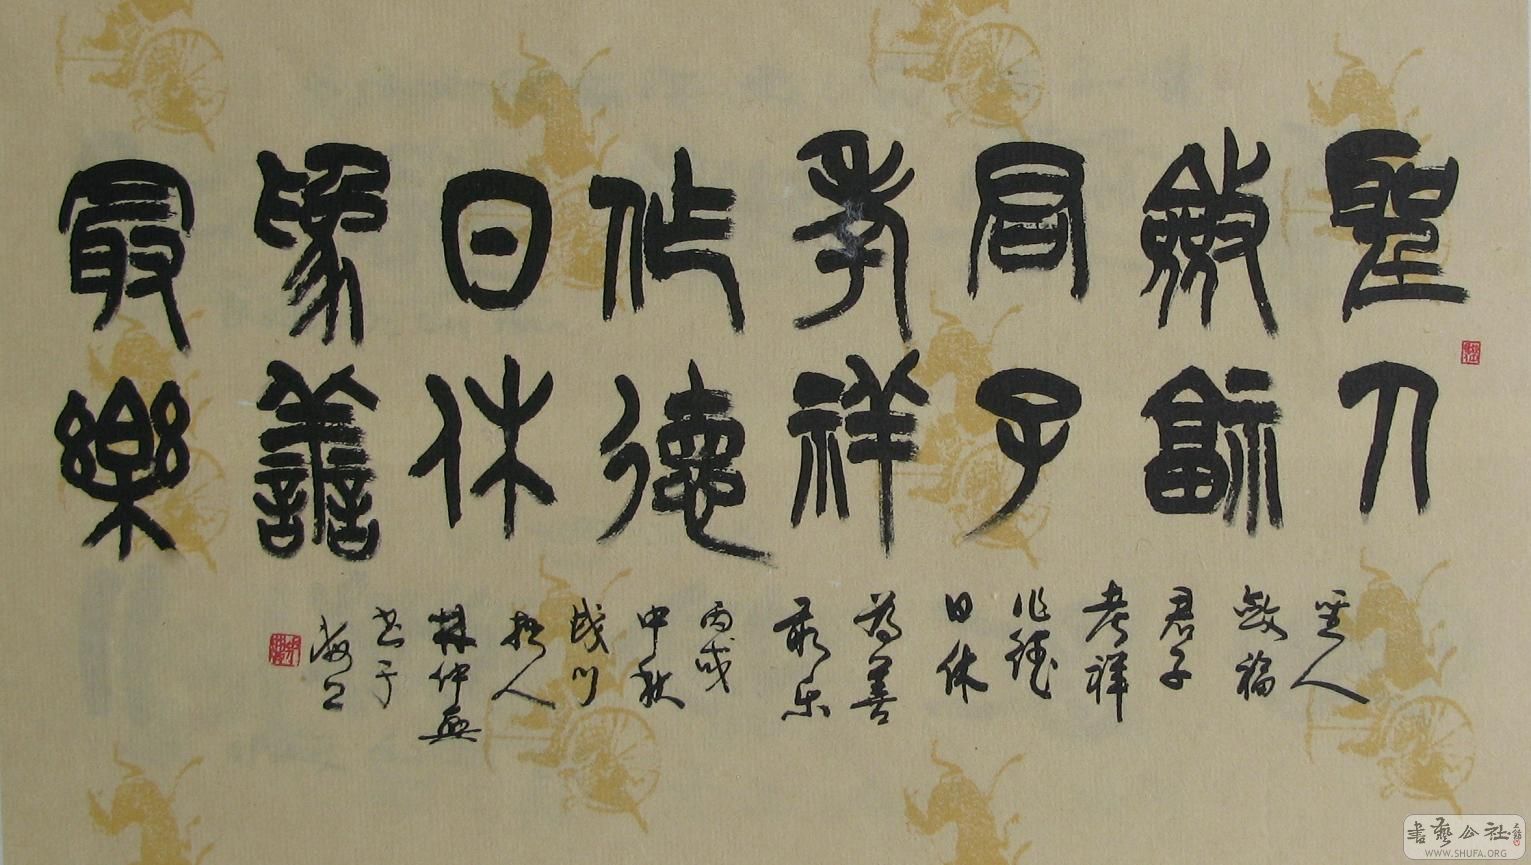 聖人
斂福
君子
考祥
作德
日休
為善
最樂
聖人
斂福
君子
考祥
作德
日休
為善
最樂
丙戌
中秋
拙人
林仲興
書于
海上
書藝公社
WWW.SHUFA.ORG